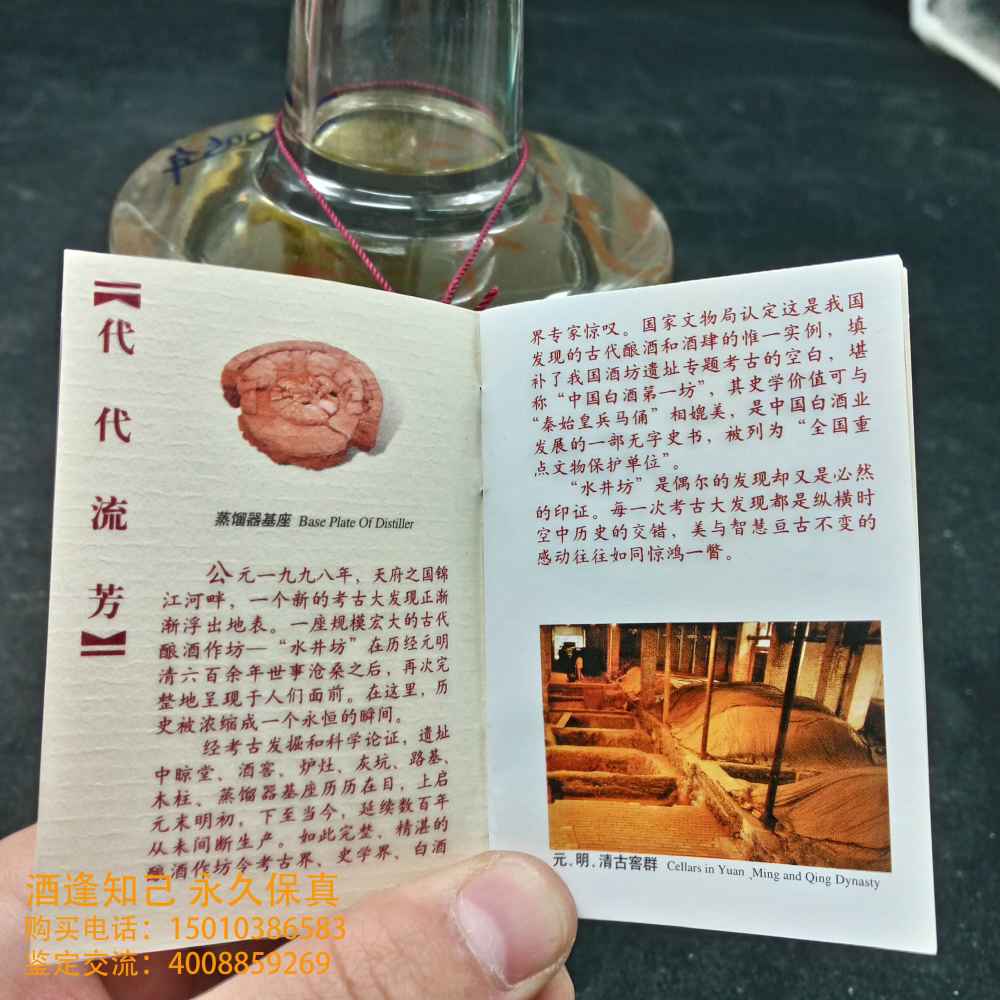 【代代流芳】
蒸馏器基座 Base Plate Of Distiller
公元一九九八年，天府之国锦
江河畔，一个新的考古大发现正渐
渐浮出地表。一座规模宏大的古代
酿酒作坊—“水井坊”在历经元明
清六百余年世事沧桑之后，再次完
整地呈现于人们面前。在这里，历
史被浓缩成一个永恒的瞬间。
经考古发掘和科学论证，遗址
中晾堂、酒窖、炉灶、灰坑、路基、
木柱、蒸馏器基座历历在目，上启
元末明初，下至当今，延续数百年
从未间断生产。如此完整、精湛的
酿酒作坊令考古界、史学界、白酒
界专家惊叹。国家文物局认定这是我国
发现的古代酿酒和酒肆的惟一实例，填
补了我国酒坊遗址专题考古的空白，堪
称“中国白酒第一坊”，其史学价值可与
“秦始皇兵马俑”相媲美，是中国白酒业
发展的一部无字史书，被列为“全国重
点文物保护单位”。
“水井坊”是偶尔的发现却又是必然
的印证。每一次考古大发现都是纵横时
空中历史的交错，美与智慧亘古不变的
感动往往如同惊鸿一瞥。
元、明、清古窖群 Cellars in Yuan 、Ming and Qing Dynasty
酒逢知己 永久保真
购买电话：15010386583
鉴定交流：4008859269